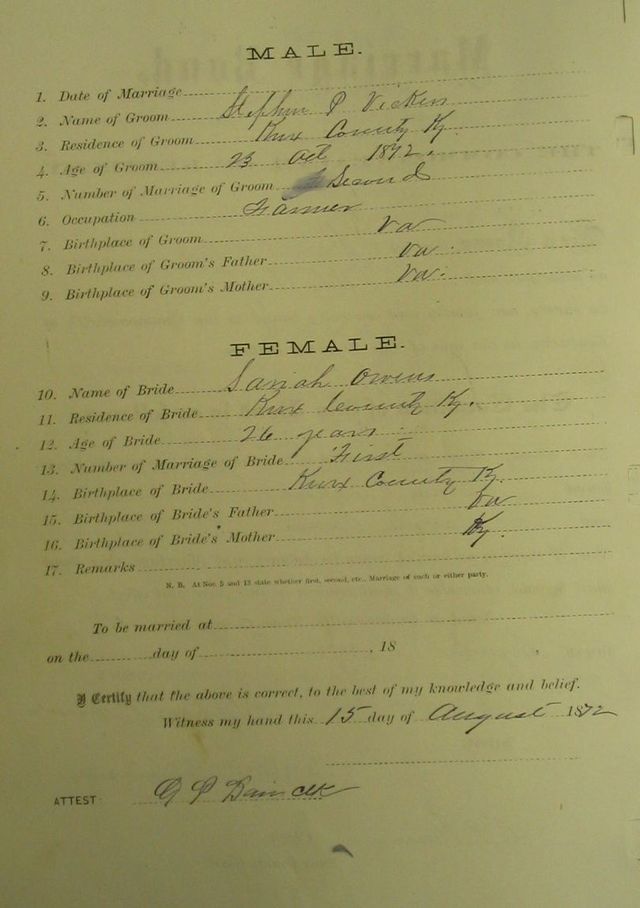 MALE.
1. Date of Marriage
2. Name of Groom Stephen P Vickers
3. Residence of Groom Knox County Ky
4. Age of Groom 23 Oct 1872.
5. Number of Marriage of Groom Second
6. Occupation Farmer
7. Birthplace of Groom Va
8. Birthplace of Groom's Father Va.
9. Birthplace of Groom's Mother Va.
FEMALE.
10. Name of Bride Sariah Owens
11. Residence of Bride Knox County Ky.
12. Age of Bride 26 years
13. Number of Marriage of Bride First
14. Birthplace of Bride Knox County Ky.
15. Birthplace of Bride's Father Va
16. Birthplace of Bride's Mother Ky.
17. Remarks
N. B. At Nos. 5 and 13 state whether first, second, etc., Marriage of each or either party.
To be married at
on the day of , 18
I Certify that the above is correct, to the best of my knowledge and belief.
Witness my hand this 15 day of August 1872
ATTEST: G P clk